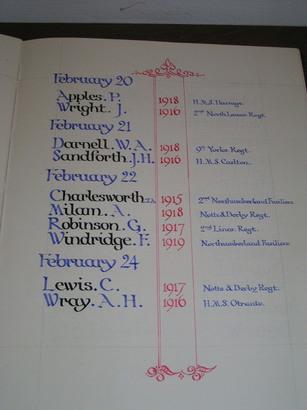 February 20
Apples. P. 1918 H.M.S.
Wright. J. 1916 2nd North Lancs Regt.
February 21
Darnell. W. A. 1918 9th Yorks Regt.
Sandforth. J.H. 1916 H.M.S.
February 22
Charlesworth. 1915 2nd Northumberland Fusiliers
Milam. A. 1918 Notts & Derby Regt.
Robinson. G. 1917 2nd Lincs. Regt.
Windridge. F. 1919 Northumberland Fusiliers
February 24
Lewis. C. 1917 Notts & Derby Regt.
Wray. A. H. 1916 H.M.S. Otranto.